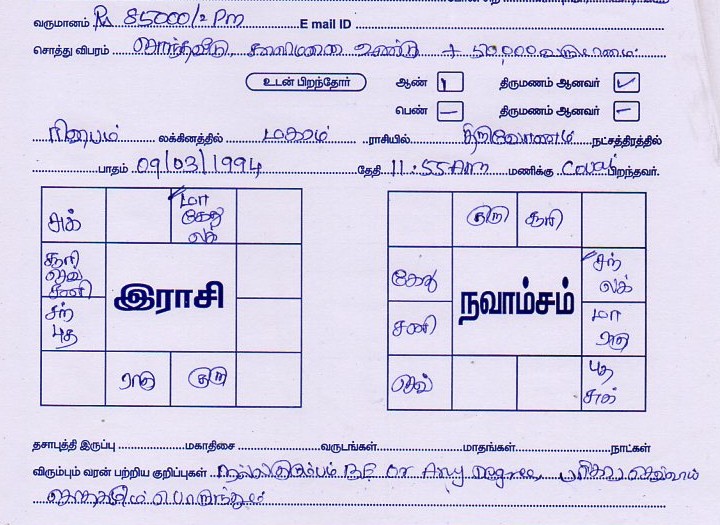 வருமானம் Rs 85000/2 Pm E mail ID
சொத்து விபரம் சொந்தவீடு, காலிமனை உண்டு + 50,000 வருமானம்
உடன் பிறந்தோர் ஆண் 1 திருமணம் ஆனவர் ✓
பெண் — திருமணம் ஆனவர் –
ரிஷபம் லக்கினத்தில் மகரம் ராசியில் திருவோணம் நட்சத்திரத்தில்
பாதம் 09/03/1994 தேதி 11.55 Am மணிக்கு Covai பிறந்தவர்.
சுக்
மா
கேது
லக்
சூரி
செவ்
சனி
சந்
புத
ராகு
குரு
இராசி
குரு
சூரி
கேது
சந்
லக்
சனி
மா
ராகு
செவ்
புத
சுக்
நவாம்சம்
தசாபுத்தி இருப்பு மகாதிசை வருடங்கள் மாதங்கள் நாட்கள்
விரும்பும் வரன் பற்றிய குறிப்புகள் நல்ல குடும்பம் BE or Any Degree, பரிகார செவ்வாய்
பொருந்தும்